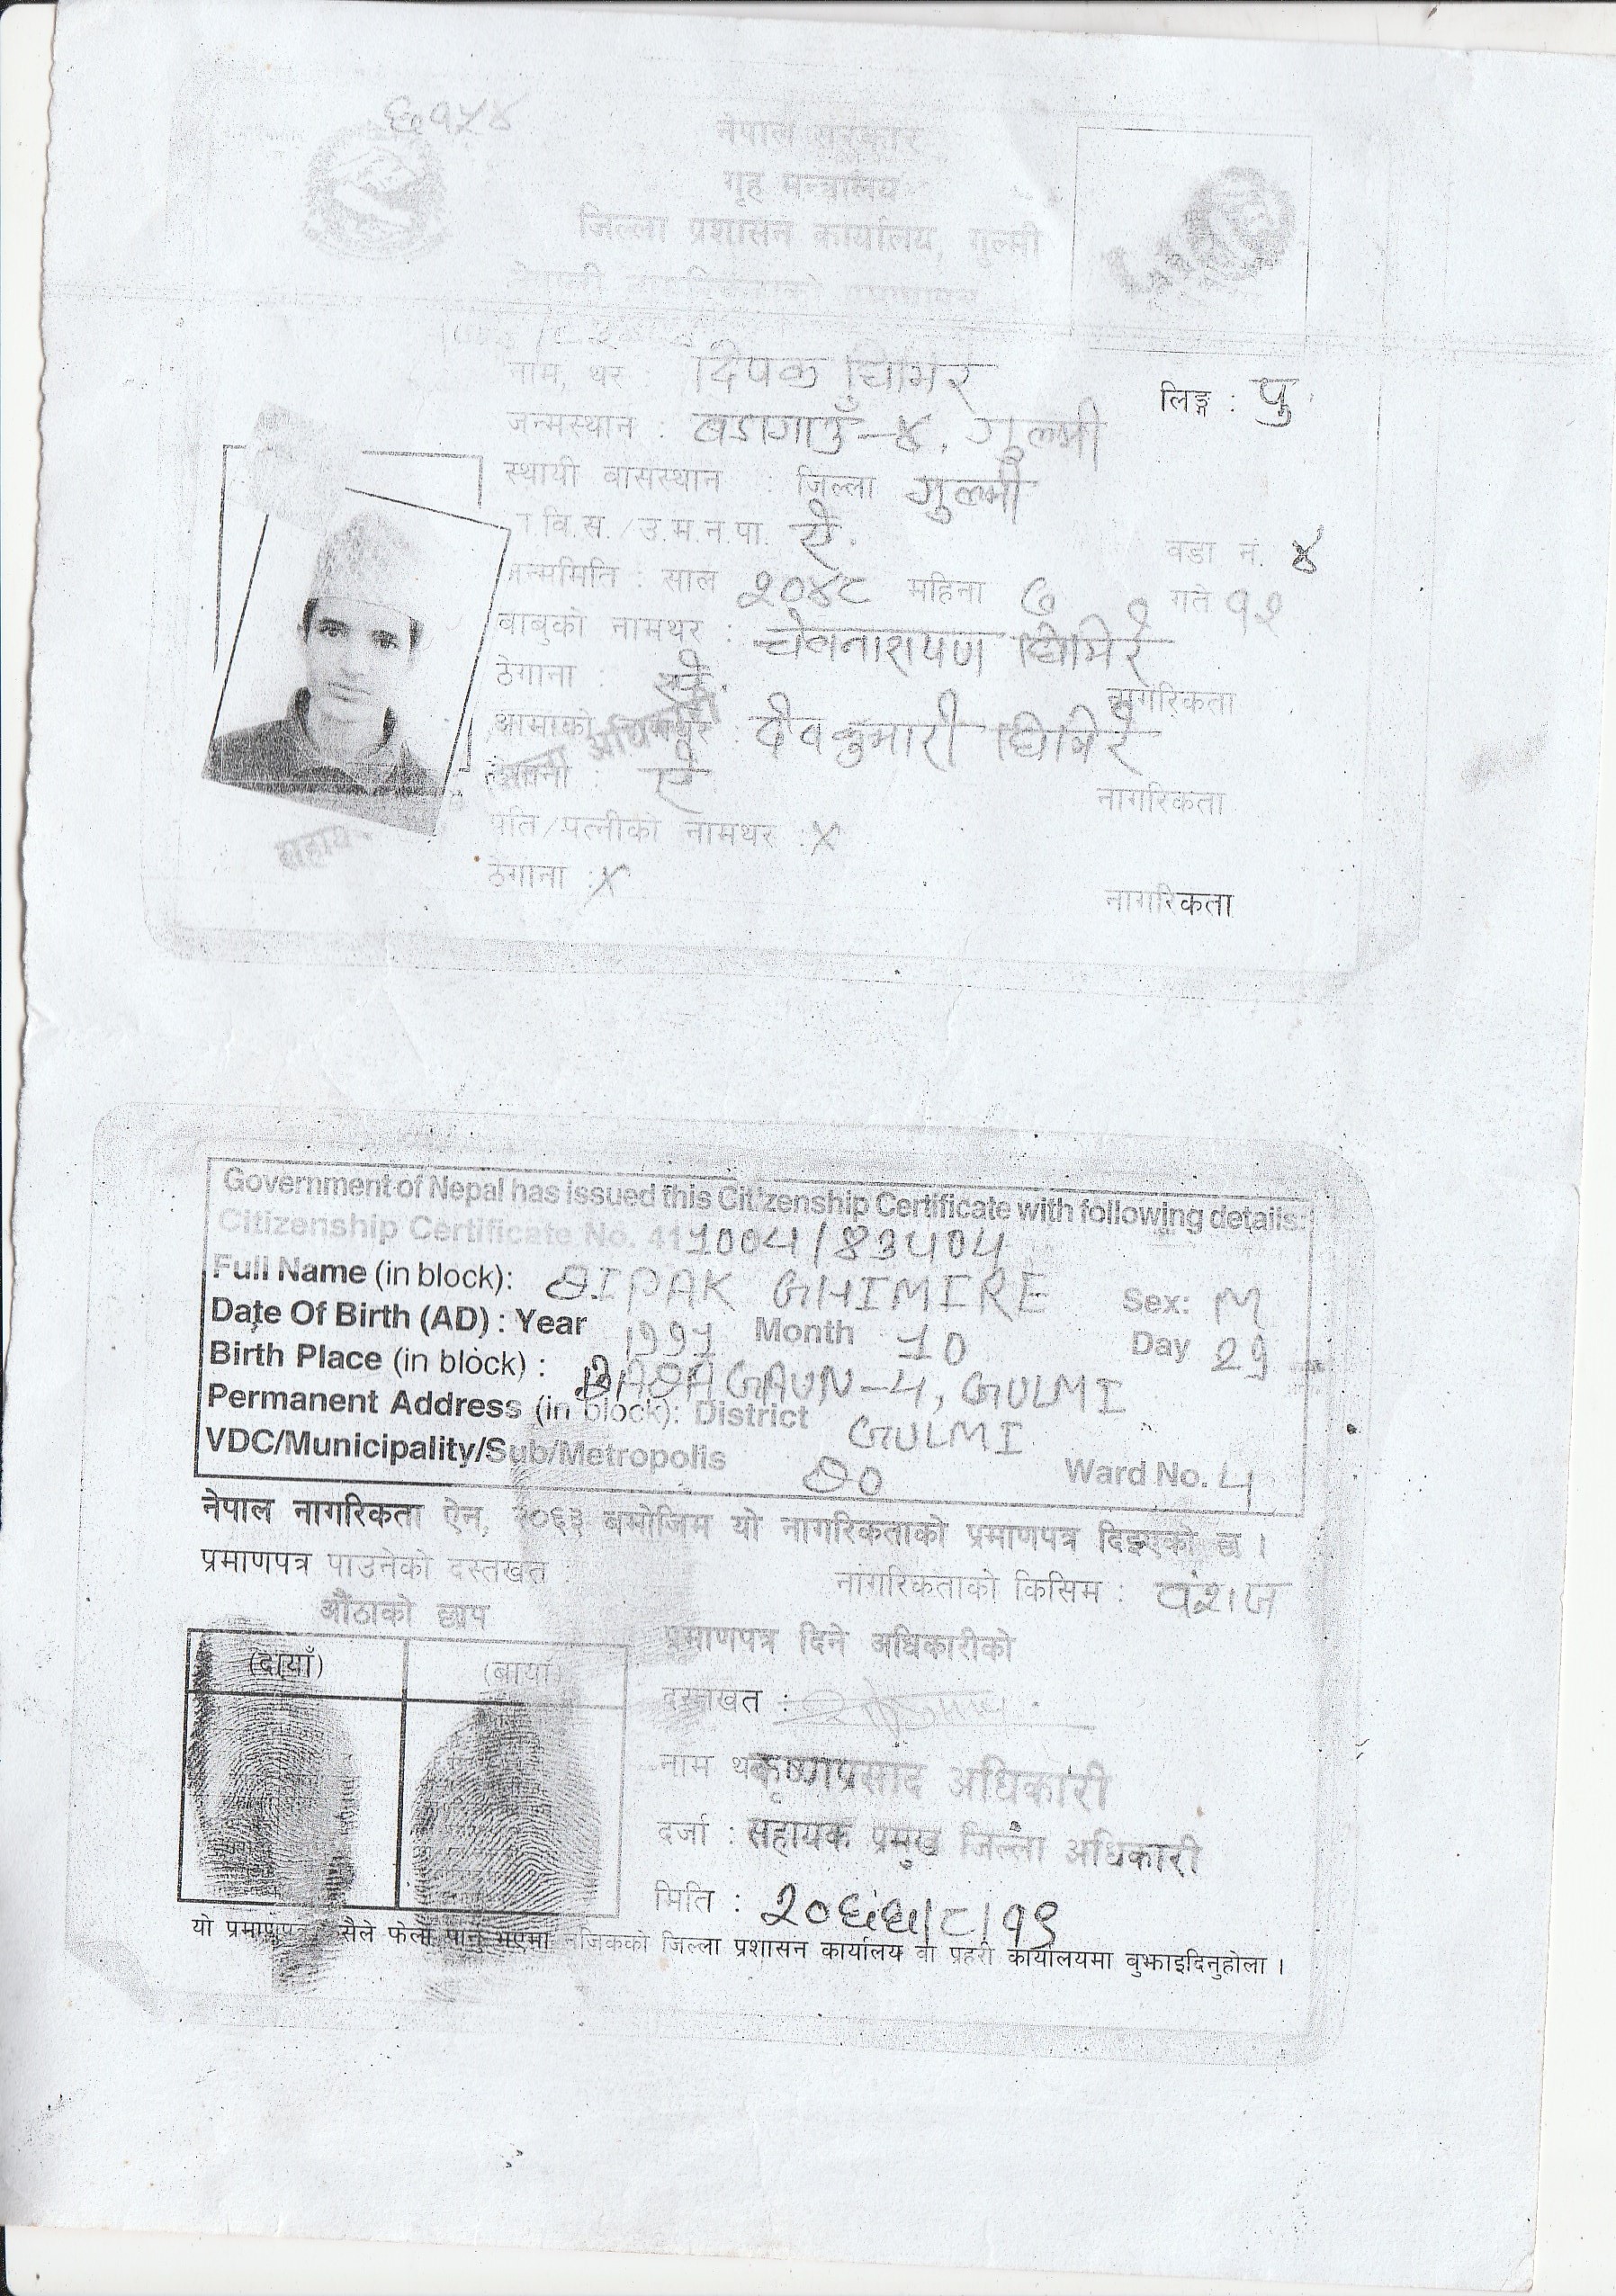 ६१५४
नेपाल सरकार
गृह मन्त्रालय
जिल्ला प्रशासन कार्यालय, गुल्मी
नेपाली नागरिकताको प्रमाणपत्र
नाम, थर : दिपक घिमिरे लिङ्ग : पु.
जन्मस्थान : बडागाउँ-४, गुल्मी
स्थायी वासस्थान : जिल्ला गुल्मी
वि.स./उ.म.न.पा. ऐ. वडा नं. ४
जन्ममिति : साल २०४८ महिना ७ गते १२
बाबुको नामथर : घिमिरे
ठेगाना : ऐ. नागरिकता
आमाको : देवकुमारी घिमिरे
ऐ
नागरिकता
पति/पत्नीको नामथर : X
ठेगाना : X
नागरिकता
Government of Nepal has issued this Citizenship Certificate with following details:
Citizenship Certificate No. 411004/83404
Full Name (in block): DIPAK GHIMIRE Sex: M
Date Of Birth (AD) : Year 1991 Month 10 Day 29
Birth Place (in block) : BADAGAUN-4, GULMI
Permanent Address (in block): District GULMI
VDC/Municipality/Sub/Metropolis DO Ward No. 4
नेपाल नागरिकता ऐन, २०६३ बमोजिम यो नागरिकताको प्रमाणपत्र दिइएको छ ।
प्रमाणपत्र पाउनेको दस्तखत : नागरिकताको किसिम : वंशज
औंठाको छाप
(दायाँ) (बायाँ)
प्रमाणपत्र दिने अधिकारीको
दस्तखत :
नाम थर कृष्णप्रसाद अधिकारी
दर्जा : सहायक प्रमुख जिल्ला अधिकारी
मिति : २०६६/८/१९
यो प्रमाणपत्र सैले फेला पार्नु भएमा नजिकको जिल्ला प्रशासन कार्यालय वा प्रहरी कार्यालयमा बुझाइदिनुहोला ।